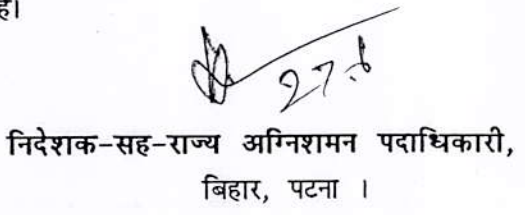 है।
27.6
निदेशक-सह-राज्य अग्निशमन पदाधिकारी,
बिहार, पटना ।